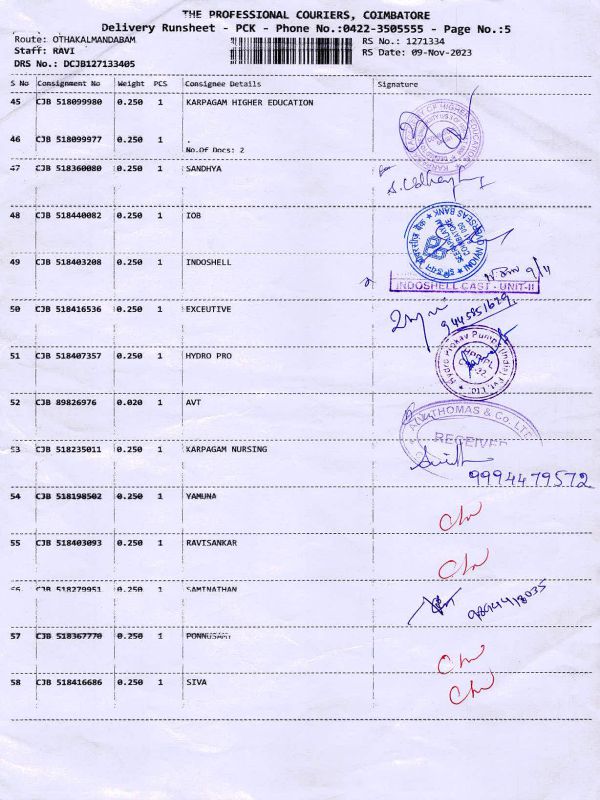 THE PROFESSIONAL COURIERS, COIMBATORE
Delivery Runsheet - PCK - Phone No.:0422-3505555 - Page No.:5
Route: OTHAKALMANDABAM RS No.: 1271334
Staff: RAVI RS Date: 09-Nov-2023
DRS No.: DCJB127133405
S No Consignment No Weight PCS Consignee Details Signature
45 CJB 518099980 0.250 1 KARPAGAM HIGHER EDUCATION
46 CJB 518099977 0.250 1 .
No.Of Docs: 2
47 CJB 518360080 0.250 1 SANDHYA
48 CJB 518440082 0.250 1 IOB
INDIAN OVERSEAS BANK
49 CJB 518403208 0.250 1 INDOSHELL
INDOSHELL CAST - UNIT-II
50 CJB 518416536 0.250 1 EXCEUTIVE
9445851629
51 CJB 518407357 0.250 1 HYDRO PRO
Hydro Prokav Pumps (India) Pvt. Ltd.
52 CJB 89826976 0.020 1 AVT
THOMAS & Co. LTD
RECEIVED
53 CJB 518235011 0.250 1 KARPAGAM NURSING
9994479572
54 CJB 518198502 0.250 1 YAMUNA
55 CJB 518403093 0.250 1 RAVISANKAR
56 CJB 518279951 0.250 1 SAMINATHAN
9894418035
57 CJB 518367770 0.250 1 PONNUSAMY
58 CJB 518416686 0.250 1 SIVA